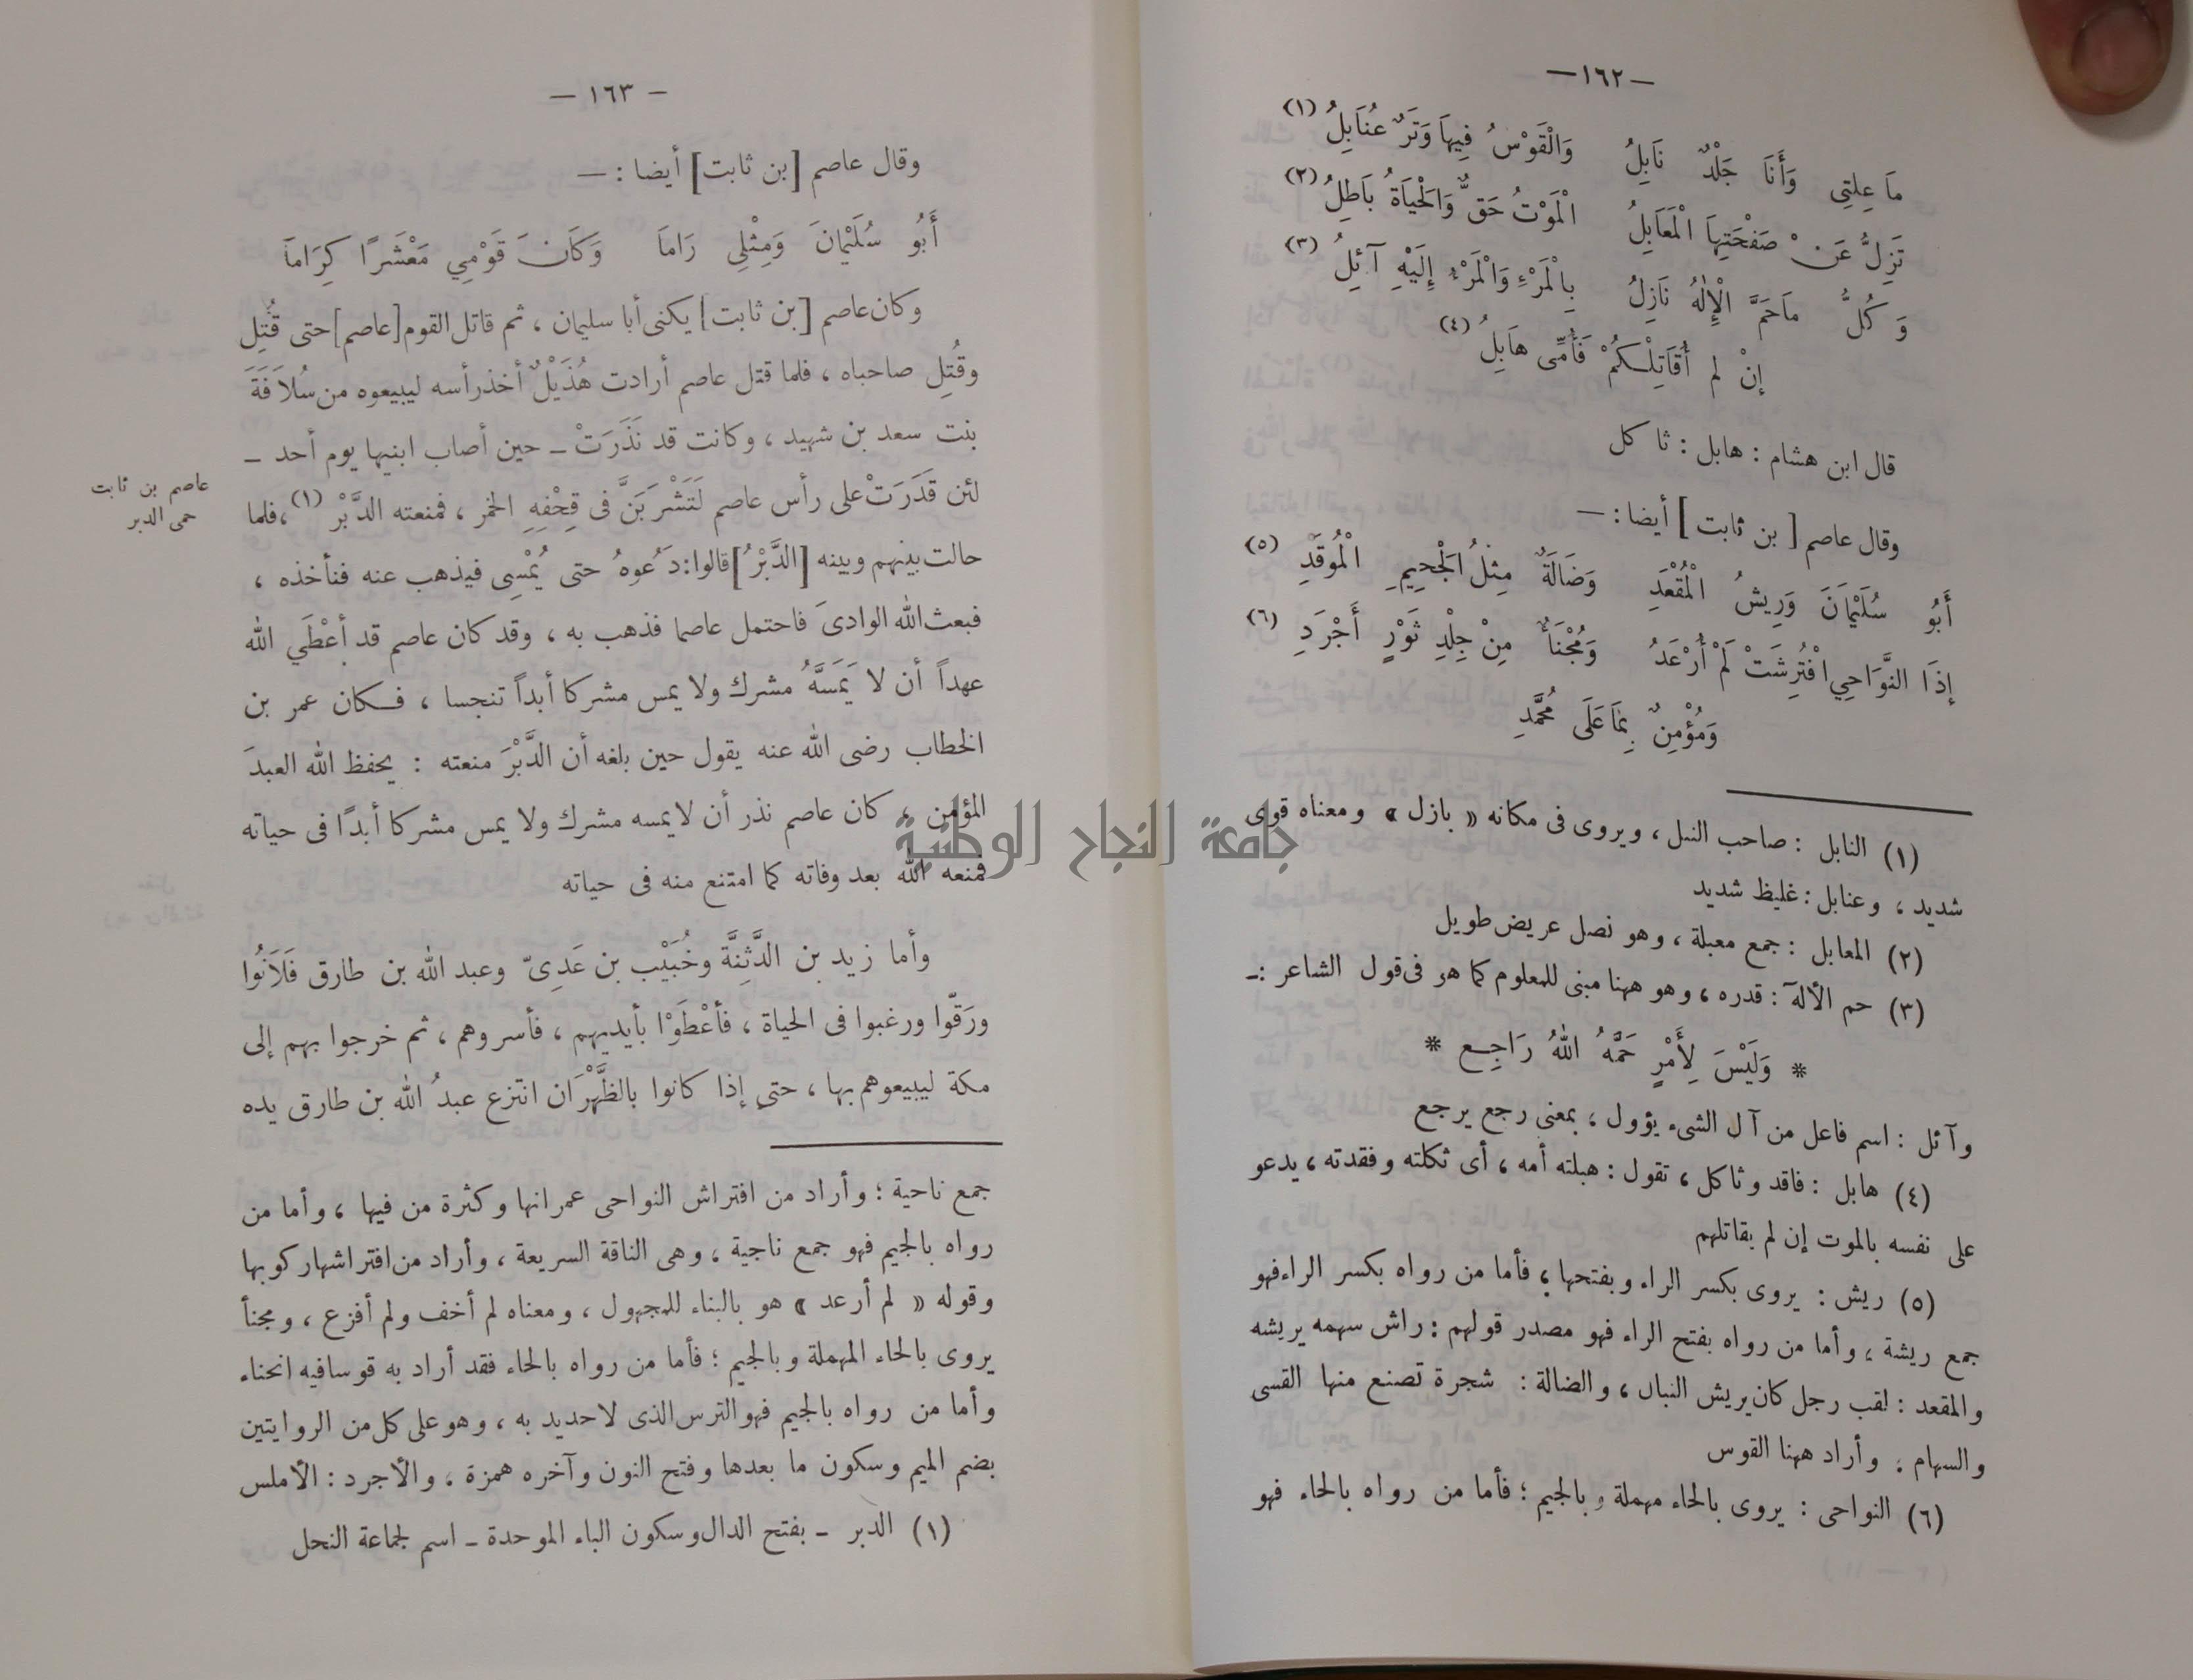 — ١٦٢ —
مَا عِلتِى وَأَنَا جَلْدٌ نَابِلُ وَالْقَوْسُ فِيهَا وَتَرٌ عُنَابِلُ (١)
تَزِلُّ عَنْ صَفْحَتِهَا الْمَعَابِلُ الْمَوْتُ حَقٌّ وَالْحَيَاةُ بَاطِلُ (٢)
وَكُلُّ مَا حَمَّ الْإِلٰهُ نَازِلُ بِالْمَرْءِ وَالْمَرْءُ إِلَيْهِ آئِلُ (٣)
إنْ لم أُقَاتِلْكُمْ فَأُمِّى هَابِلُ (٤)
قال ابن هشام : هابل : ثاكل
وقال عاصم [ بن ثابت ] أيضا : —
أَبُو سُلَيْمَانَ وَرِيشُ الْمُقْعَدِ وَضَالَةٌ مِثْلُ الْجَحِيمِ الْمُوقَدِ (٥)
إذَا النَّوَاحِي افْتُرِشَتْ لَمْ أُرْعَدُ وَمُجْنَأٌ مِنْ جِلْدِ ثَوْرٍ أَجْرَدِ (٦)
وَمُؤْمِنٌ بِمَا عَلَى مُحَمَّدِ
(١) النابل : صاحب النبل ، ويروى فى مكانه « بازل » ومعناه قوى
شديد ، وعنابل : غليظ شديد
(٢) المعابل : جمع معبلة ، وهو نصل عريض طويل
(٣) حم الألَه : قدره ، وهو ههنا مبنى للمعلوم كما هو فى قول الشاعر :ـ
* وَلَيْسَ لِأَمْرٍ حَمَّهُ اللهُ رَاجِع *
وآئل : اسم فاعل من آل الشىء يؤول ، بمعنى رجع يرجع
(٤) هابل : فاقد وثاكل ، تقول : هبلته أمه ، أى ثكلته وفقدته ، يدعو
على نفسه بالموت إن لم يقاتلهم
(٥) ريش : يروى بكسر الراء وبفتحها ، فأما من رواه بكسر الراء فهو
جمع ريشة ، وأما من رواه بفتح الراء فهو مصدر قولهم : راش سهمه يريشه
والمقعد : لقب رجل كان يريش النبال ، والضالة : شجرة تصنع منها القسى
والسهام ، وأراد ههنا القوس
(٦) النواحى : يروى بالحاء مهملة وبالجيم ؛ فأما من رواه بالحاء فهو
— ١٦٣ —
وقال عاصم [بن ثابت] أيضا : —
أَبُو سُلَيْمَانَ وَمِثْلِى رَامَا وَكَانَ قَوْمِي مَعْشَرًا كِرَامَا
وكان عاصم [بن ثابت] يكنى أبا سليمان ، ثم قاتل القوم [عاصم] حتى قُتِل
وقُتِل صاحباه ، فلما قتل عاصم أرادت هُذَيْلٌ أخذ رأسه ليبيعوه من سُلَافَةَ
بنت سعد بن شهيد ، وكانت قد نَذَرَتْ ـ حين أصاب ابنيها يوم أحد ـ
لئن قَدَرَتْ على رأس عاصم لَتَشْرَبَنَّ فى قِحْفِهِ الخمر ، فمنعته الدَّبْر (١) ، فلما
حالت بينهم وبينه [الدَّبْرُ] قالوا : دَعُوهُ حتى يُمْسِى فيذهب عنه فنأخذه ،
فبعث الله الوادىَ فاحتمل عاصما فذهب به ، وقد كان عاصم قد أعْطَي الله
عهداً أن لا يَمَسَّهُ مشرك ولا يمس مشركا أبداً تنجسا ، فكان عمر بن
الخطاب رضى الله عنه يقول حين بلغه أن الدَّبْرَ منعته : يحفظ الله العبدَ
المؤمن ، كان عاصم نذر أن لا يمسه مشرك ولا يمس مشركا أبدًا فى حياته
فمنعه الله بعد وفاته كما امتنع منه فى حياته
وأما زيد بن الدَّثِنَّة وخُبَيْب بن عَدِىّ وعبد الله بن طارق فَلَانُوا
ورَقّوا ورغبوا فى الحياة ، فأعْطَوْا بأيديهم ، فأسروهم ، ثم خرجوا بهم إلى
مكة ليبيعوهم بها ، حتى إذا كانوا بالظَّهْرَان انتزع عبدُ الله بن طارق يده
عاصم بن ثابت
حمى الدبر
جمع ناحية ؛ وأراد من افتراش النواحى عمرانها وكثرة من فيها ، وأما من
رواه بالجيم فهو جمع ناجية ، وهى الناقة السريعة ، وأراد من افتراشها ركوبها
وقوله « لم أرعد » هو بالبناء للمجهول ، ومعناه لم أخف ولم أفزع ، ومجنأ
يروى بالحاء المهملة وبالجيم ؛ فأما من رواه بالحاء فقد أراد به قوسا فيه انحناء
وأما من رواه بالجيم فهو الترس الذى لا حديد به ، وهو على كل من الروايتين
بضم الميم وسكون ما بعدها وفتح النون وآخره همزة ، والأجرد : الأملس
(١) الدبر ـ بفتح الدال وسكون الباء الموحدة ـ اسم لجماعة النحل
جامعة النجاح الوطنية